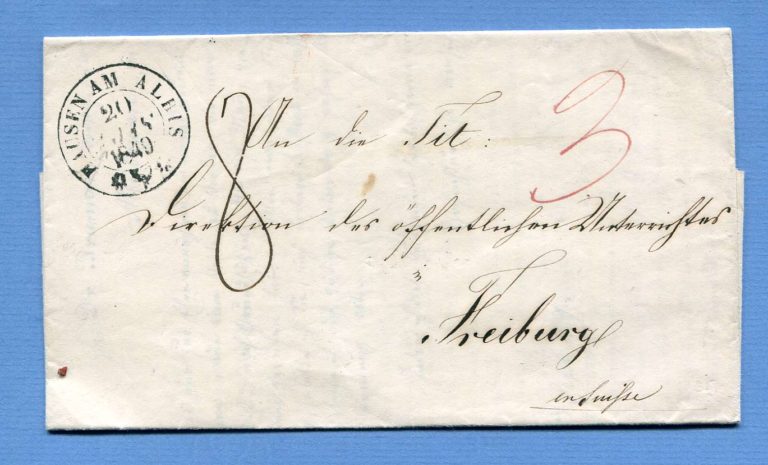 HAUSEN AM ALBIS
20
1849
8
3
An die Tit:
Direktion des öffentlichen Unterrichtes
in
Freiburg
en Suisse